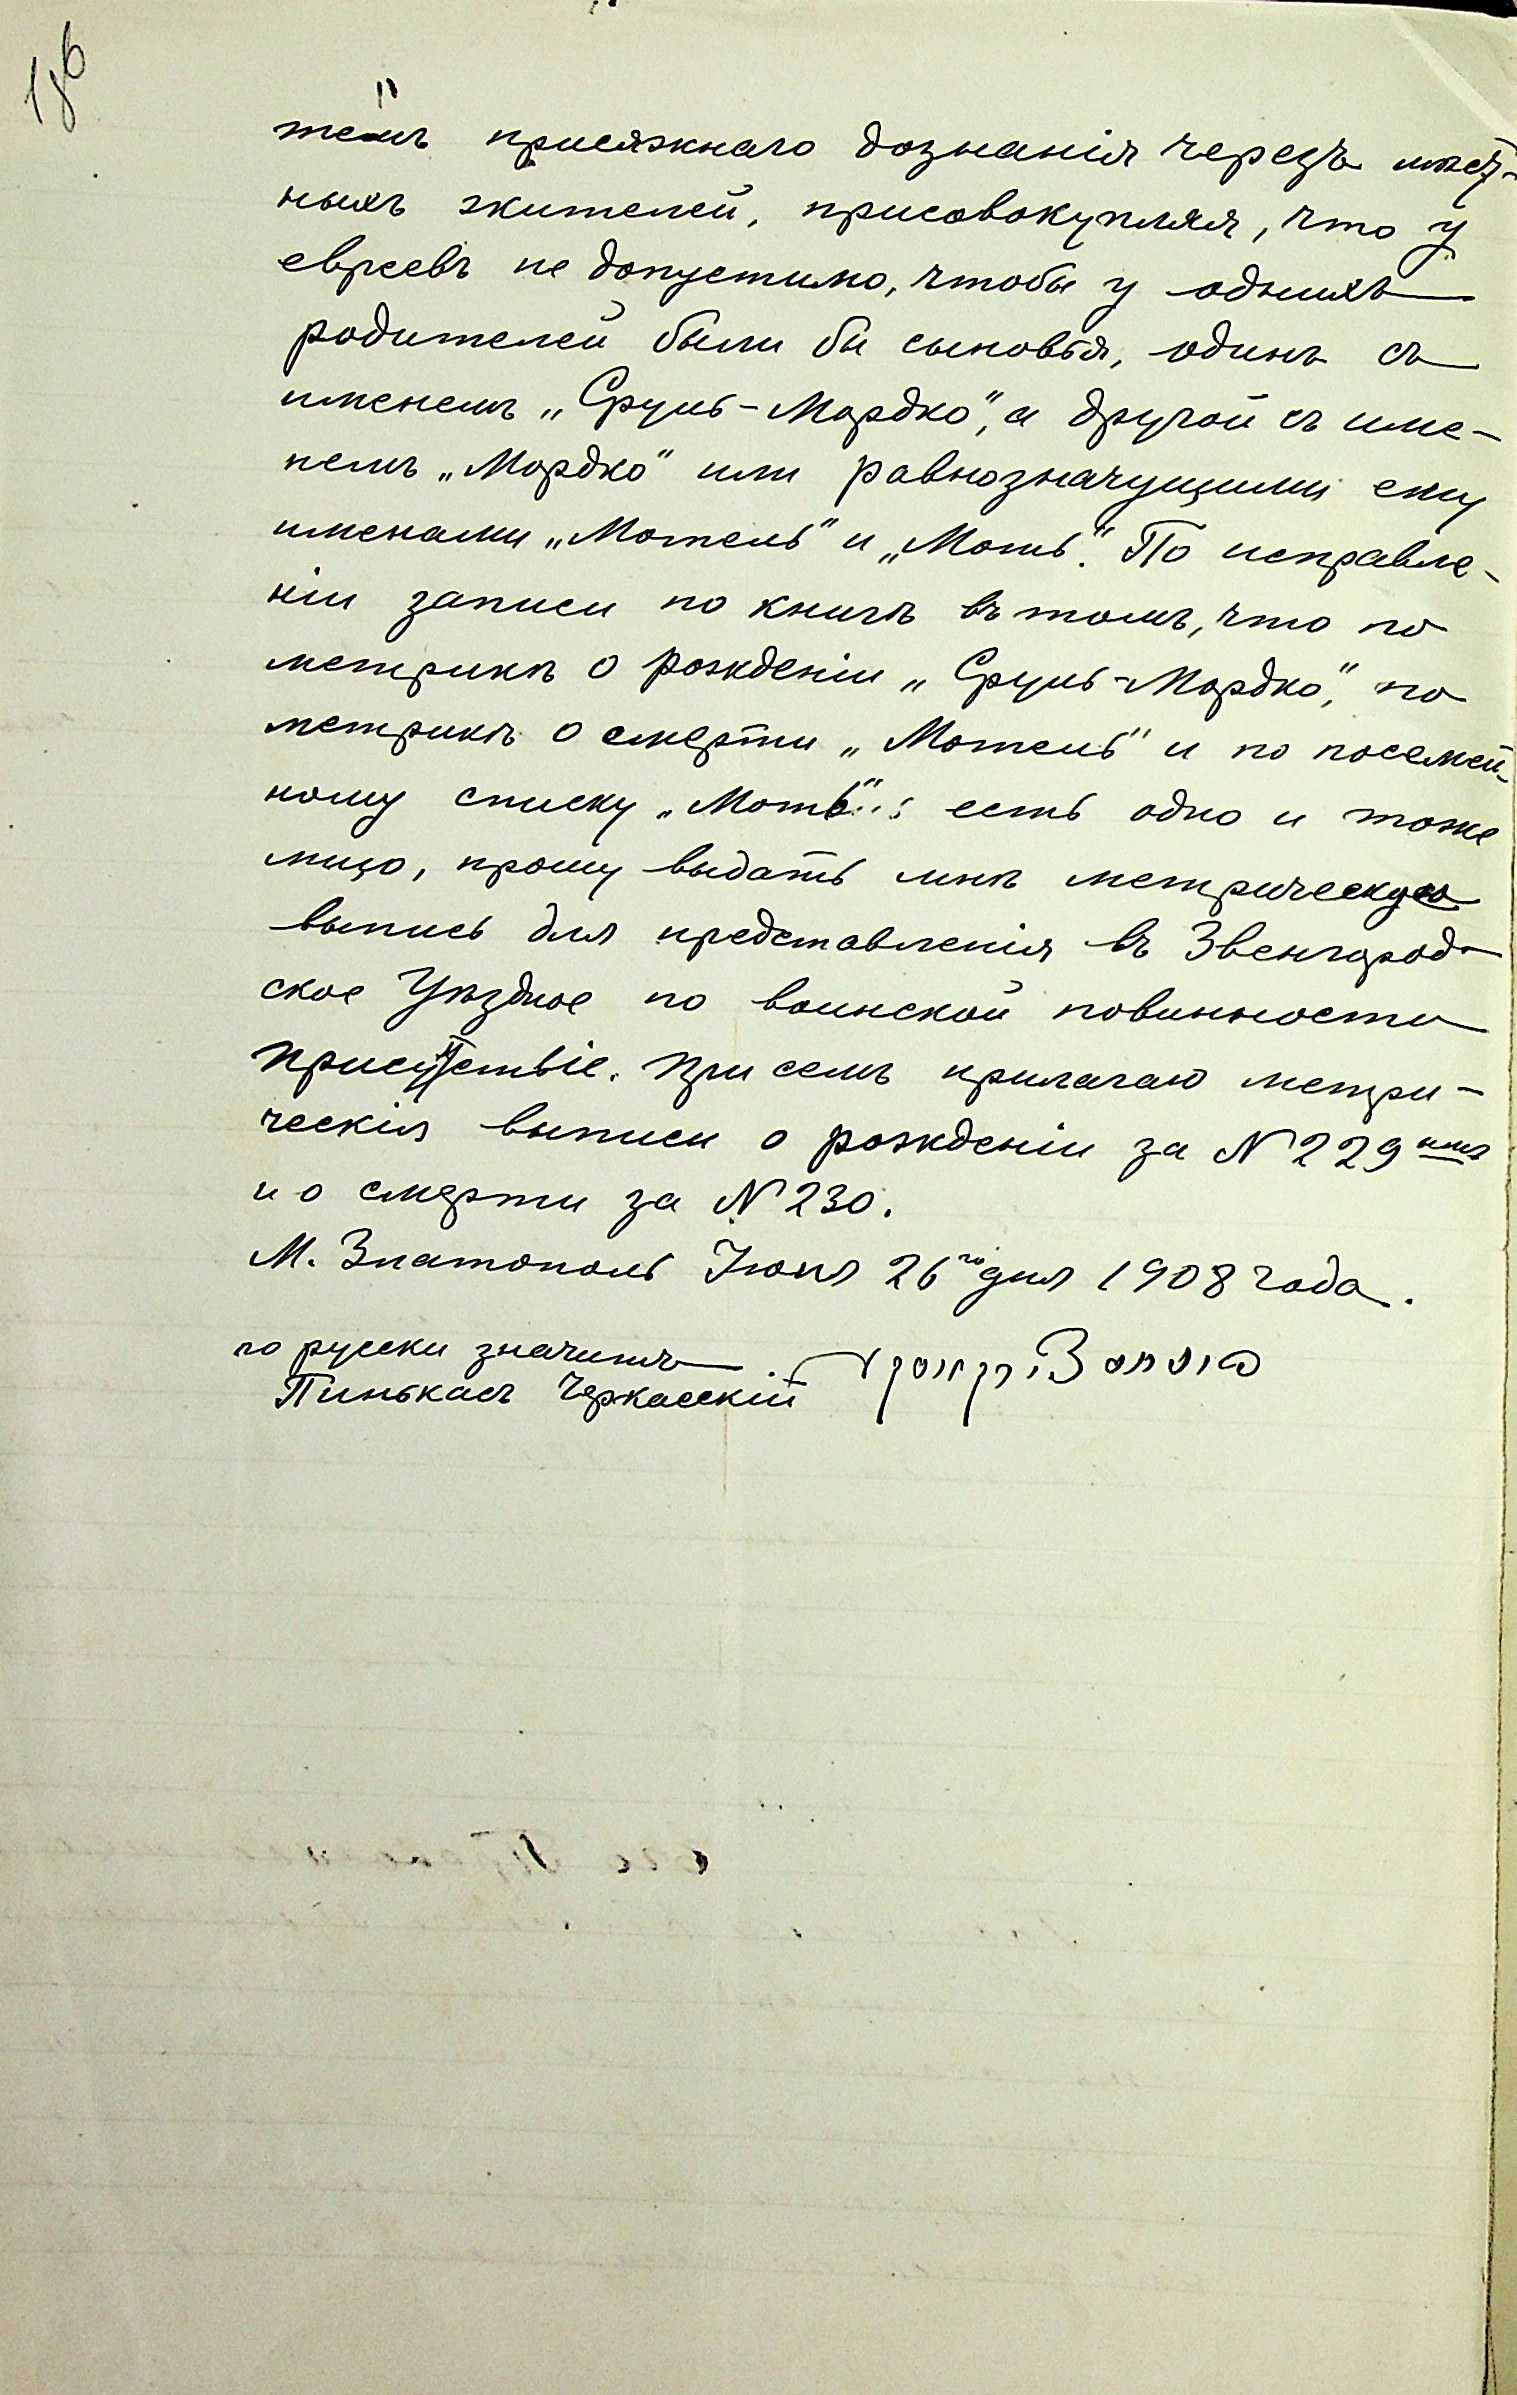 темъ присяжнаго дознанія черезъ мѣст-
ныхъ жителей, присовокупляя, что у
евреевъ не допустимо, чтобы у однихъ
родителей были бы сыновья, одинъ съ
именемъ „Сруль-Мордко“, а другой съ име-
немъ „Мордко“ или равнозначущими ему
именами „Мотель“ и „Моть“. По исправле-
ніи записи по книгѣ въ томъ, что по
метрикѣ о рожденіи „Сруль-Мордко“, по
метрикѣ о смерти „Мотель“ и по посемей-
ному списку „Моть“ есть одно и тоже
лицо, прошу выдать мнѣ метрическую
выпись для представленія въ Звенгород-
ское Уѣздное по воинской повинности
Присутствіе. При семъ прилагаю метри-
ческія выписи о рожденіи за N 229
и о смерти за N 230.
М. Златополь Іюня 26го дня 1908 года.
по русски значитъ
Пинькасъ Черкасскій